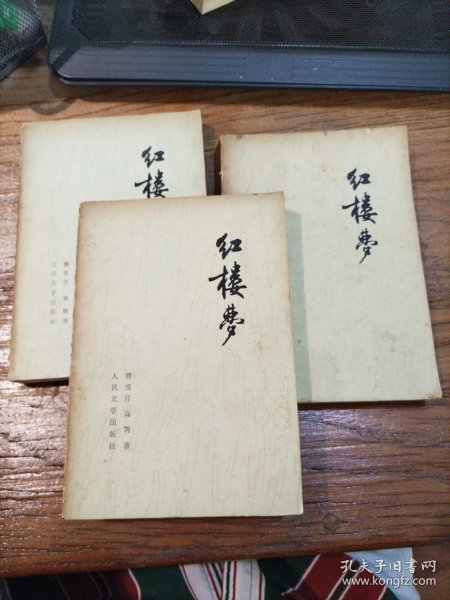 红楼
曹雪芹 高鹗 著
人民文学出版社
红楼梦
红楼梦
曹雪芹 高鹗 著
人民文学出版社
孔夫子旧书网
www.kongfz.com